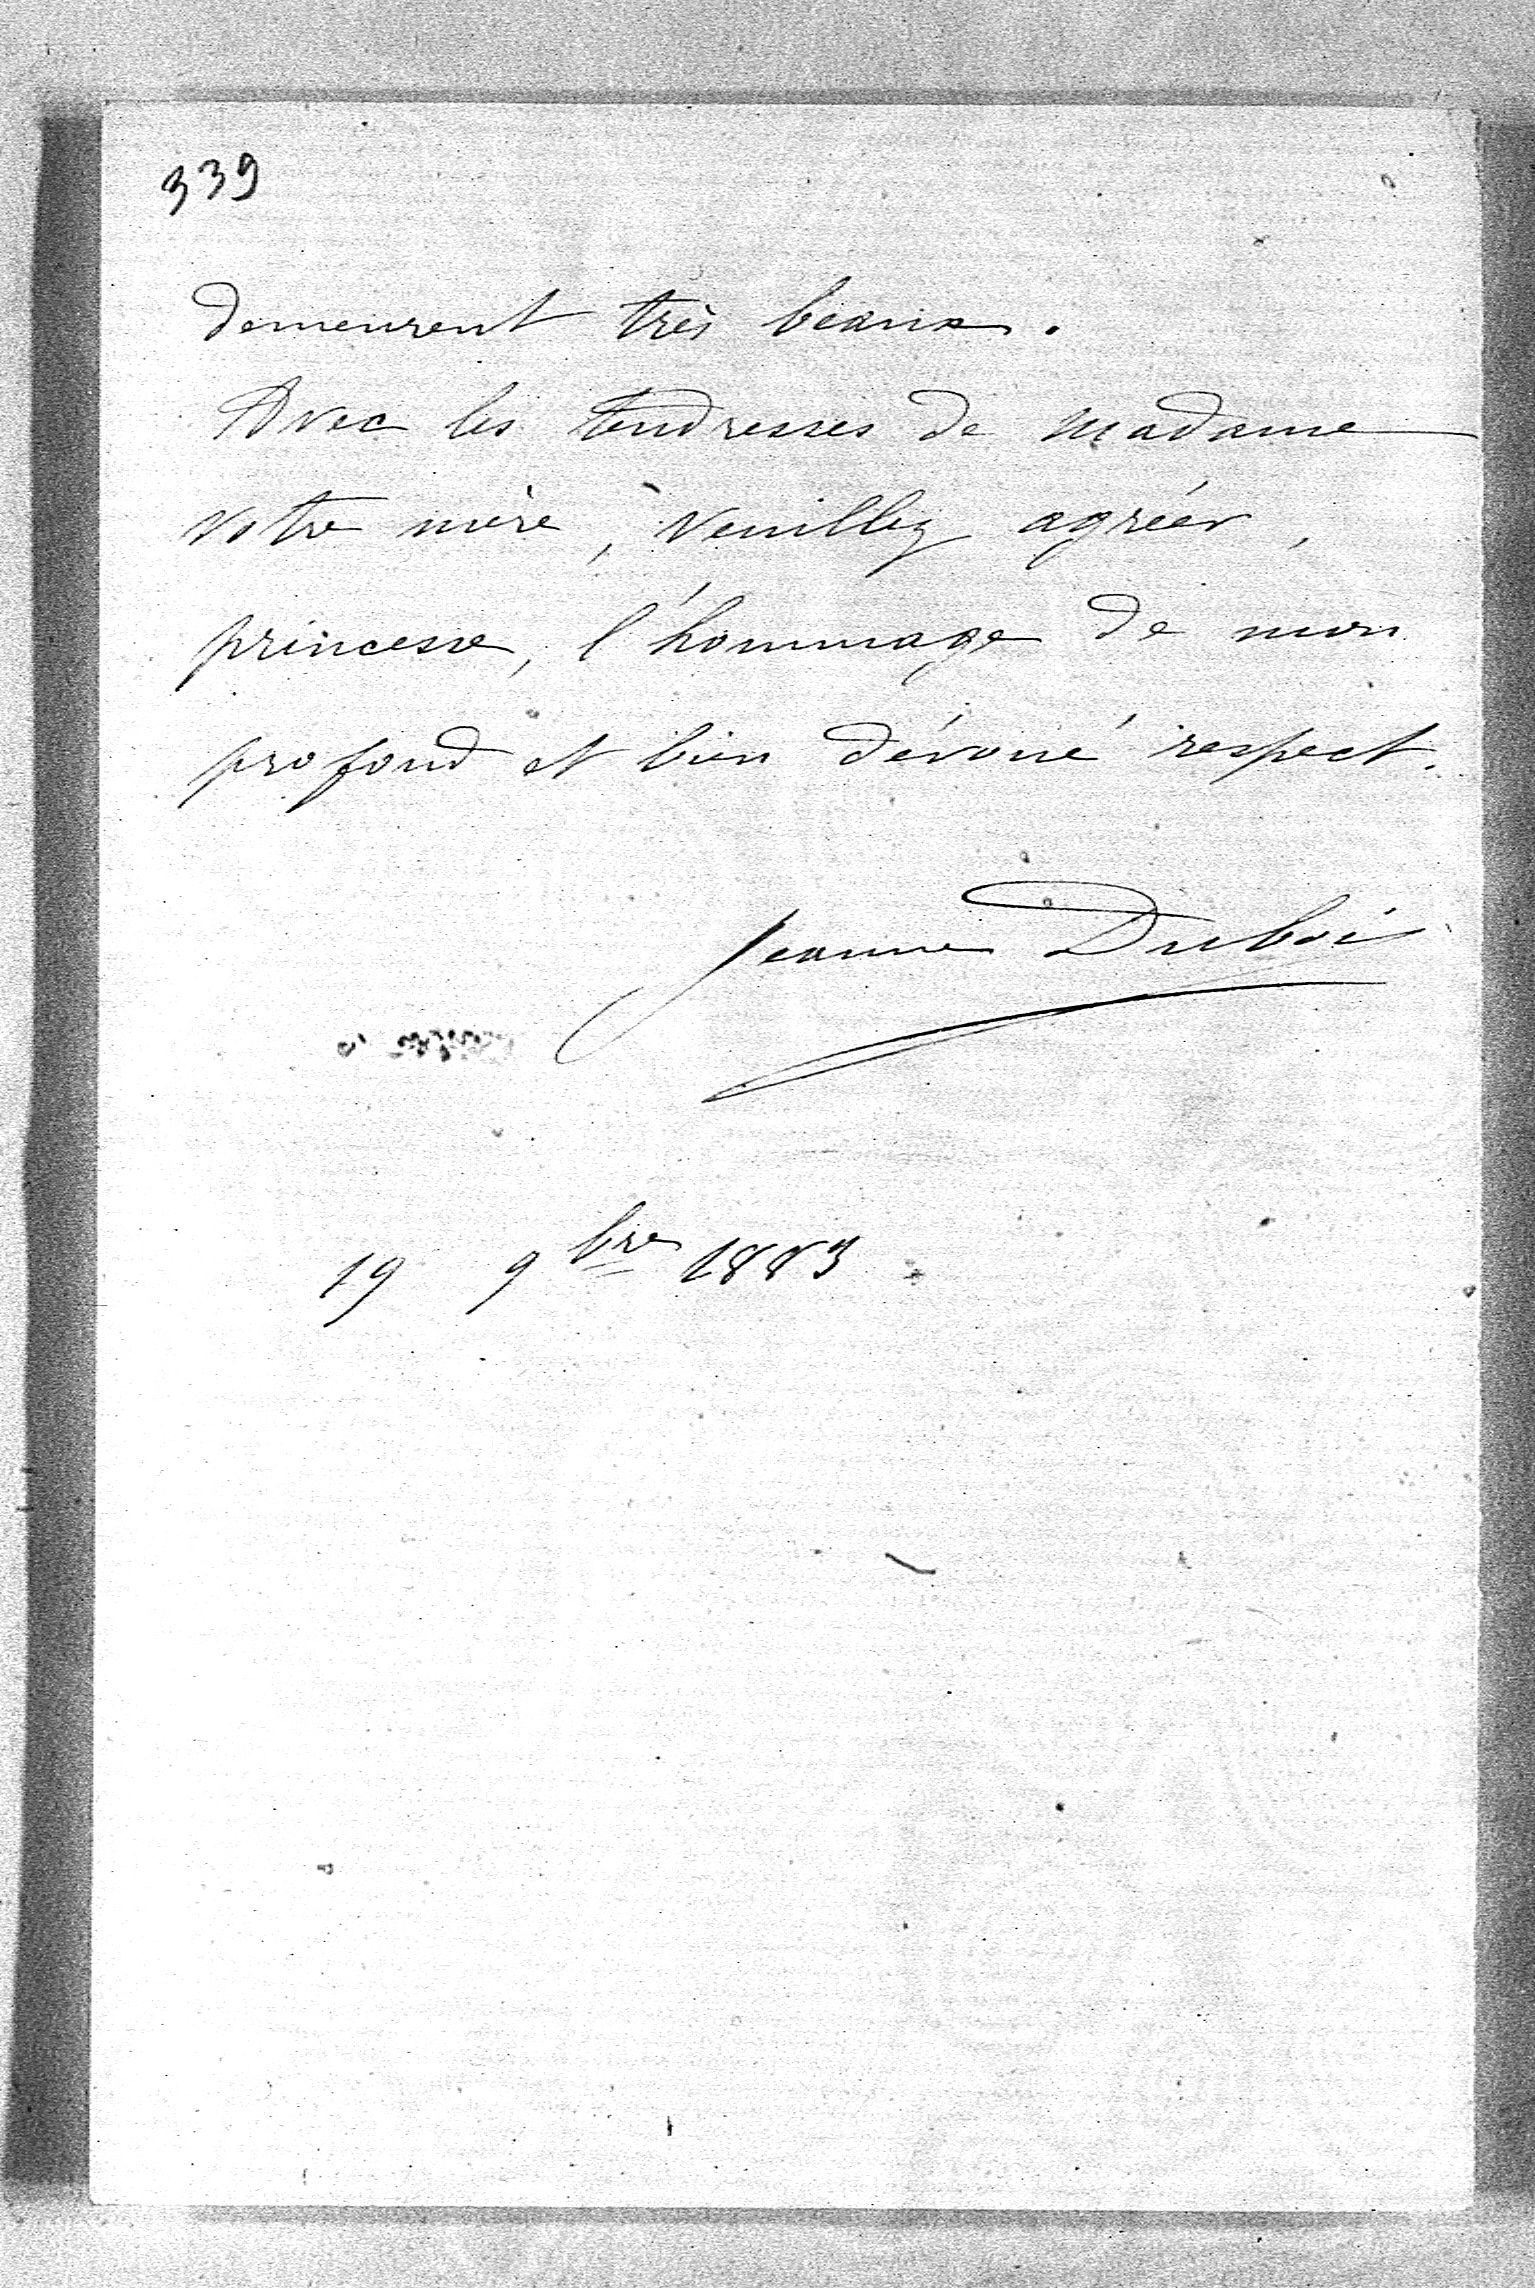 339
demeurent très beaux.
Avec les tendresses de madame
votre mère, veuillez agréer,
princesse, l'hommage de mon
profond et bien dévoué respect.
Jeanne Dubois
19 9bre 1883